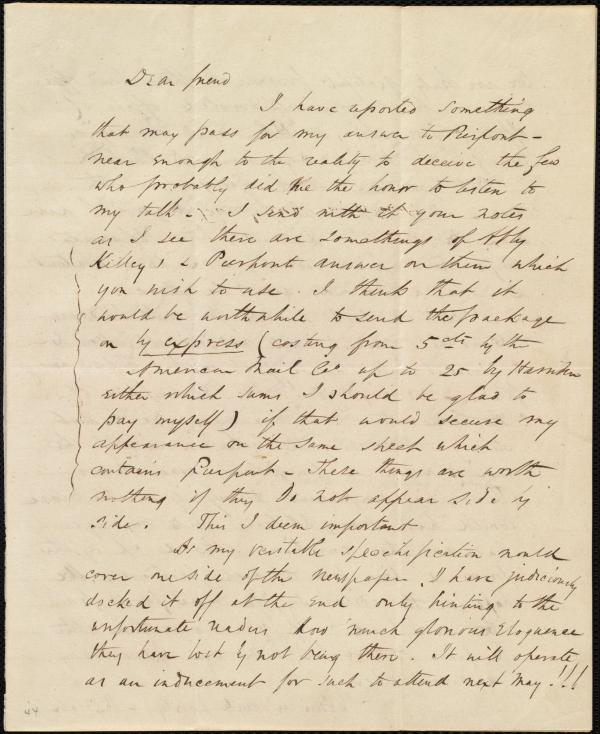 Dear friend
I have reported something
that may pass for my answer to Pierpont -
near enough to the reality to deceive the few
who probably did me the honor to listen to
my talk - I send with it your notes
as I see there are somethings of Abby
Kelley's & Pierponts answer on them which
you wish to use. I think that it
would be worth while to send the package
on by express (costing from 5 cts by the
American Mail Co up to 25 by Harnden
either which sums I should be glad to
pay myself) if that would secure my
appearance on the same sheet which
contains Pierpont - These things are worth
nothing if they do not appear side by
side. This I deem important
As my veritable speechification would
cover one side of the newspaper, I have judiciously
docked it off at the end only hinting to the
unfortunate readers how much glorious eloquence
they have lost by not being there. It will operate
as an inducement for such to attend next May!!!